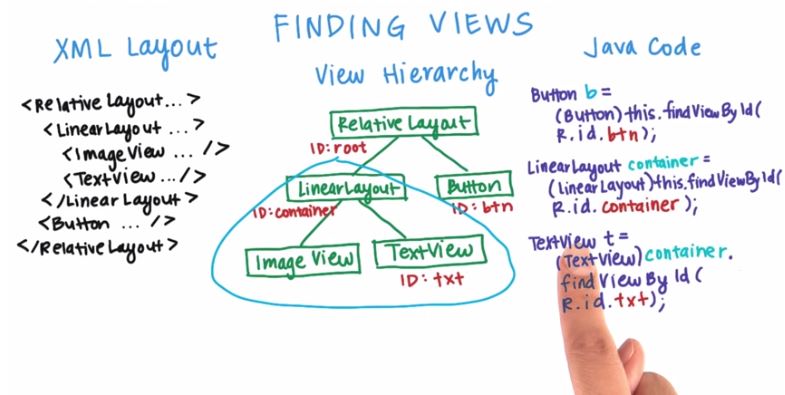 FINDING VIEWS
XML Layout
<Relative Layout...>
<LinearLayout ...>
<ImageView ... />
<TextView .../>
</Linear Layout>
<Button ... />
</Relative Layout>
View Hierarchy
Relative Layout
ID: root
LinearLayout
ID: container
Button
ID: btn
Image View
TextView
ID: txt
Java Code
Button b =
(Button) this.findViewById(
R.id.btn);
LinearLayout container =
(LinearLayout) this.findViewById(
R.id.container);
TextView t =
(TextView) container.
findViewById(
R.id.txt);